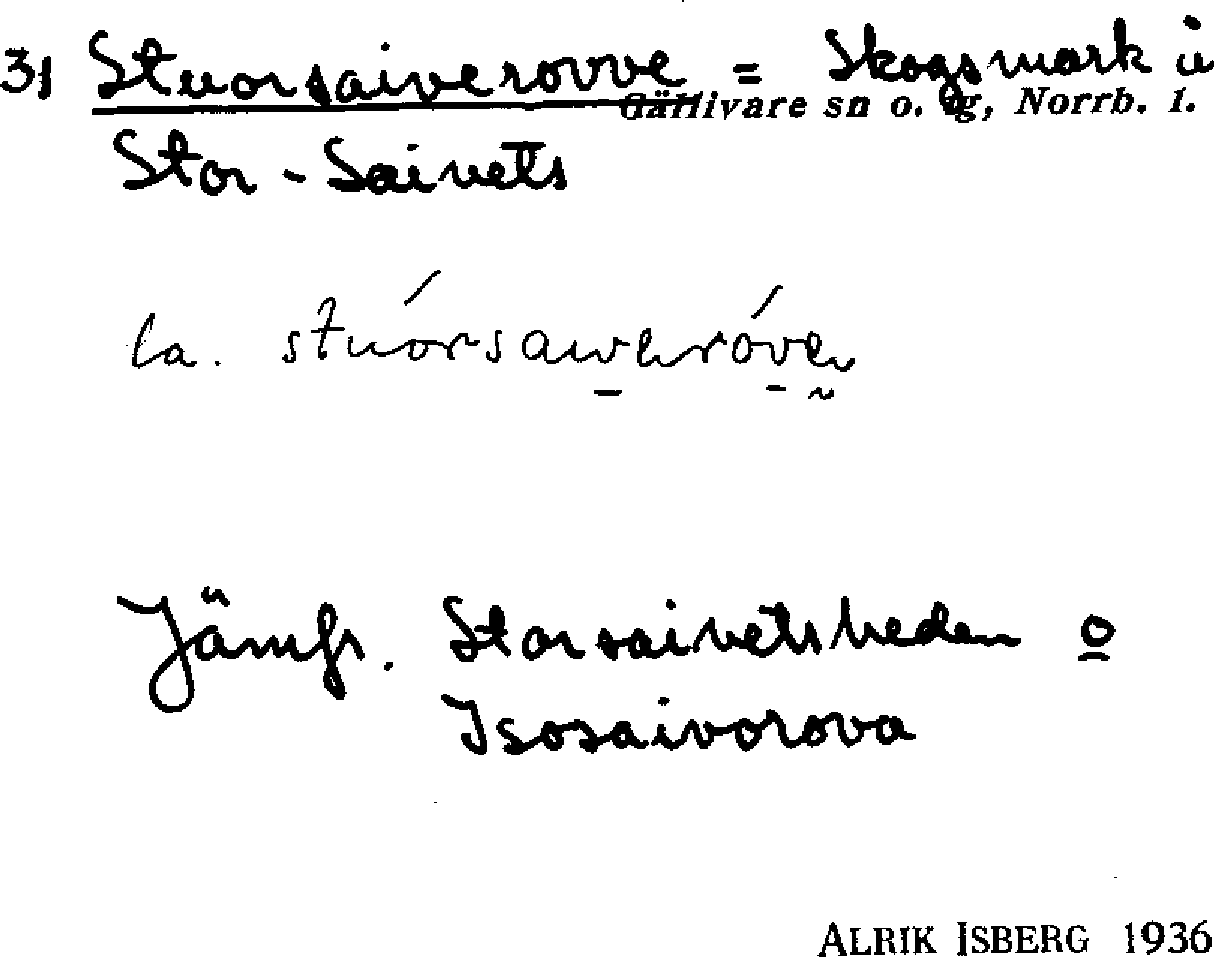 31 Stuorsaiverovve = Skogsmark ů
Gällivare sn o. tg, Norrb. l.
Stor-Saivets
la.
Jämfr. Storsaivetsheden o
Isosaivorova
ALRIK ISBERG 1936